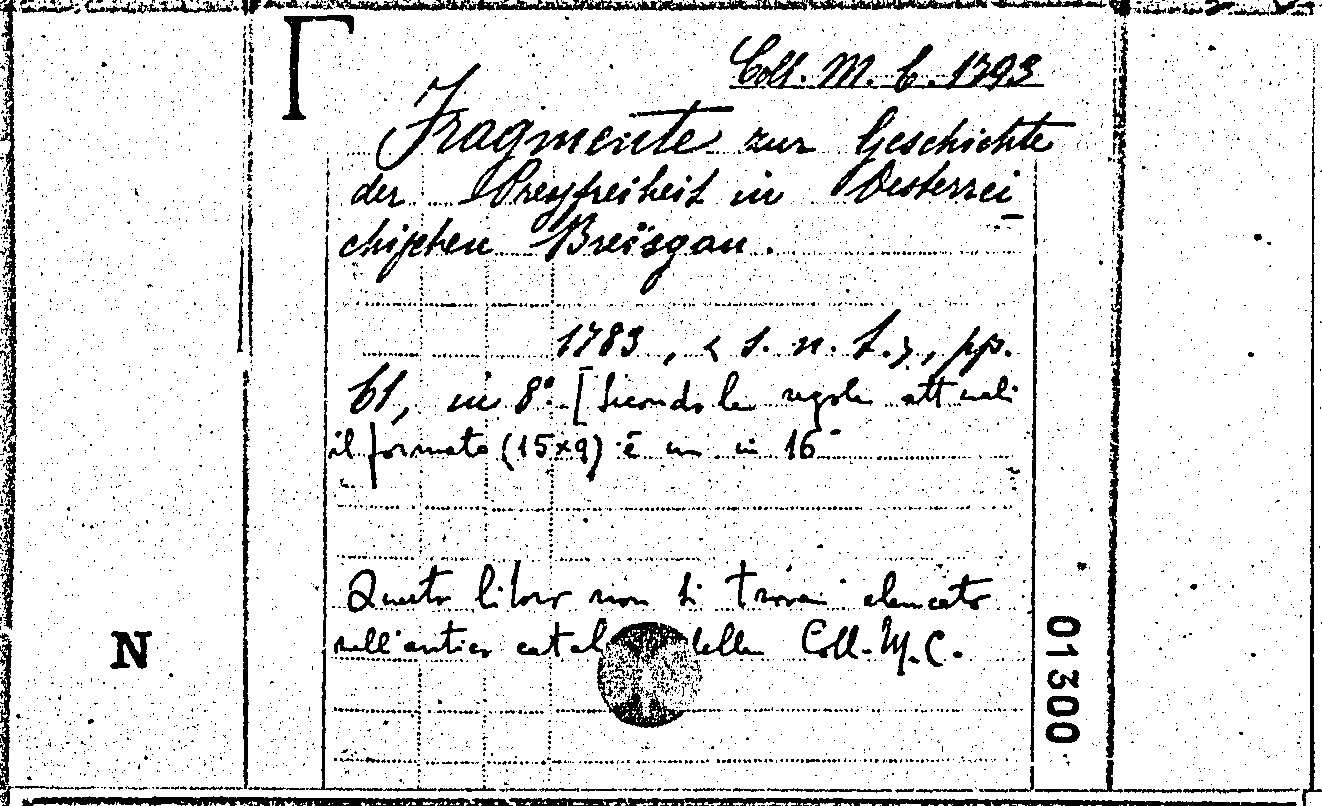 Coll. M. C. 1793
Fragmente zur Geschichte
der Preyfreiheit in Oesterrei
chischen Breisgau.
1783, < s. n. t. >, pp.
61, in 8°. [Secondo le regole attuali
il formato (15x9) è un in 16°
Questo libro non si trova elencato
nell'antico catal della Coll. M. C.
N
01300